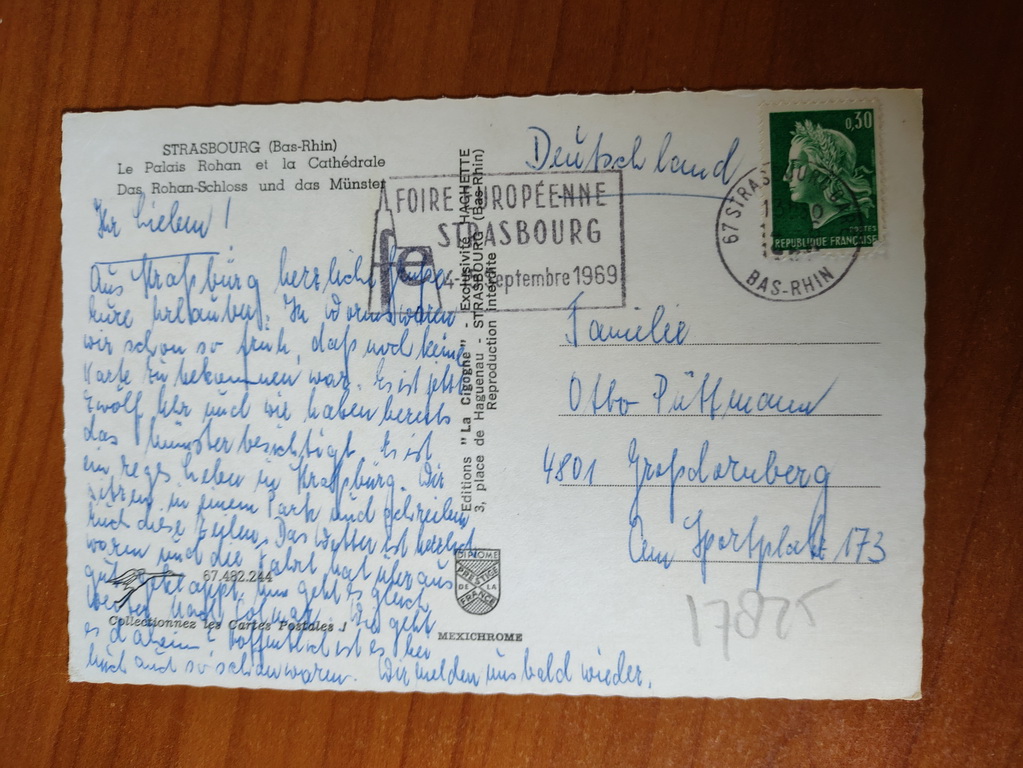 STRASBOURG (Bas-Rhin)
Le Palais Rohan et la Cathédrale
Das Rohan-Schloss und das Münster
Ihr Lieben!
Aus Straßburg herzliche Grüße
wir schon so früh, daß noch keine
Karte zu bekommen war. Es ist jetzt
zwölf Uhr und wir haben bereits
das Münster besichtigt. Es ist
ein reges Leben in Straßburg. Wir
sitzen in einem Park und schreiben
Euch diese Zeilen. Das Wetter ist herrlich
warm und die Fahrt hat überaus
gut geklappt. Nun geht es gleich
weiter nach Colmar. Wie geht
es daheim? Hoffentlich ist es bei
Euch auch so schön warm. Wir melden uns bald wieder.
67.482.244
Collectionnez les Cartes Postales !
Editions "La Cigogne" - Exclusivité HACHETTE
3, place de Haguenau - STRASBOURG (Bas-Rhin)
Reproduction interdite
DIPLOME
PRESTIGE
DE LA
FRANCE
MEXICHROME
FOIRE EUROPÉENNE
STRASBOURG
fe
Septembre 1969
67 STRASBOURG
BAS-RHIN
0,30
POSTES
REPUBLIQUE FRANÇAISE
Deutschland
Familie
Otto Püttmann
4801 Großdornberg
Am Sportplatz 173
17825